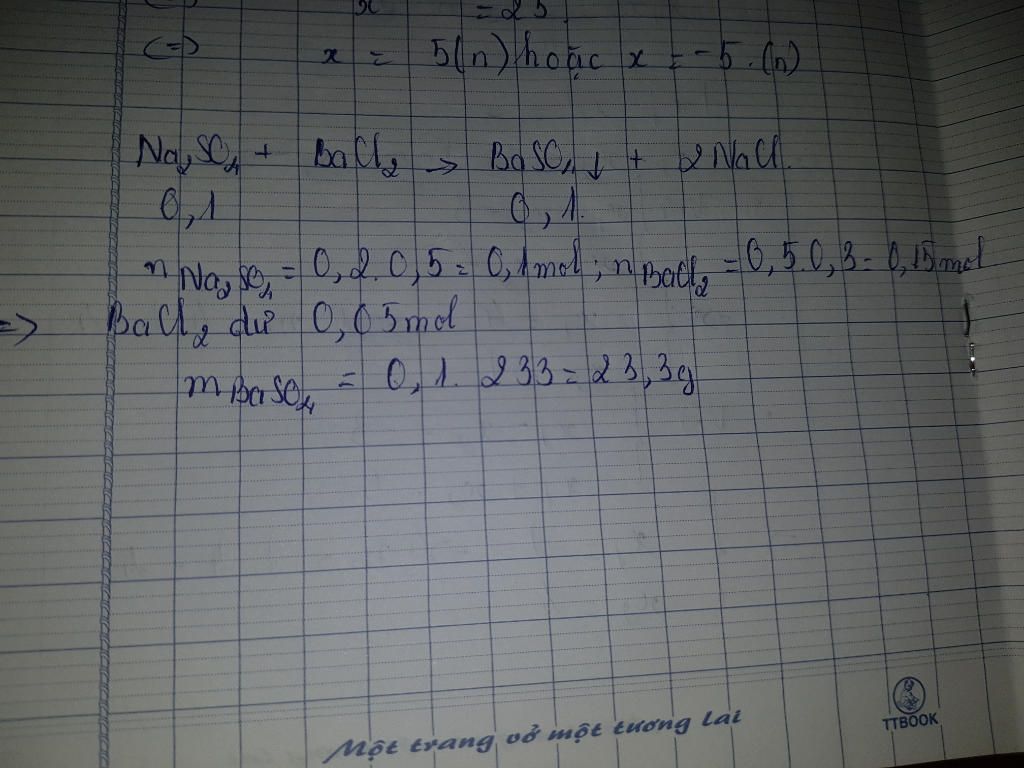 x = 25
(=) x = 5(n) hoặc x = -5. (n)
Na₂SO₄ + BaCl₂ → BaSO₄↓ + 2NaCl.
0,1 0,1.
n Na₂SO₄ = 0,2.0,5 = 0,1mol ; n BaCl₂ = 0,5.0,3 = 0,15mol
=> BaCl₂ dư 0,05mol
m BaSO₄ = 0,1. 233 = 23,3g
Một trang vở một tương lai
TTBOOK